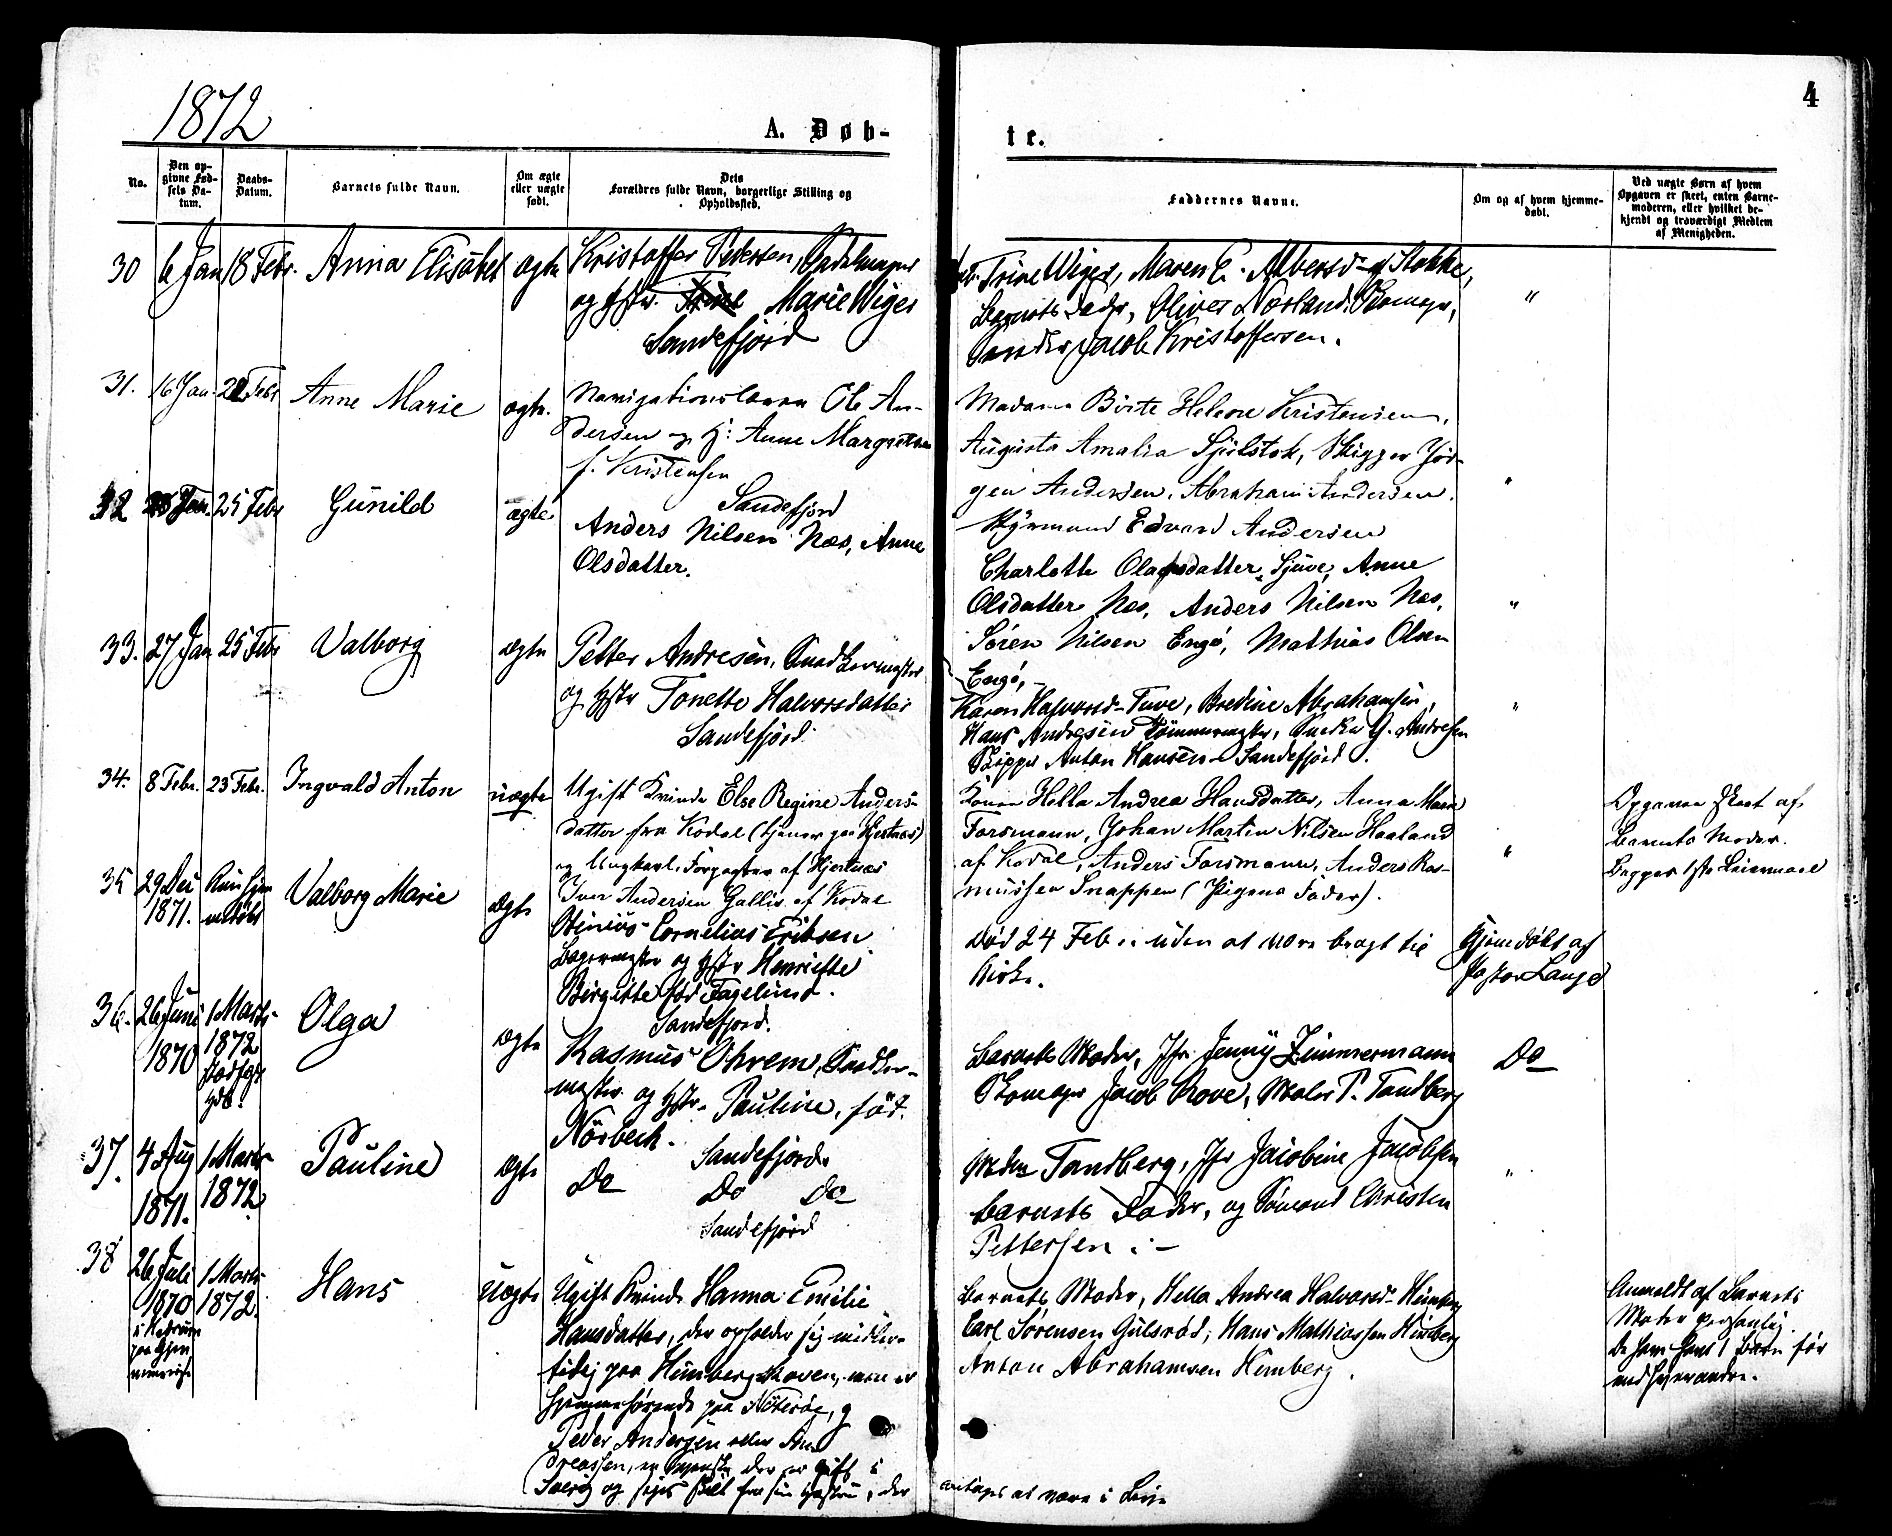 1872
4
A. Døb-
te.
No.
Den op-
givne Fød-
sels Da-
tum.
Daabs-
Datum.
Barnets fulde Navn.
Om ægte
eller uægte
født.
Dets
Forældres fulde Navn, borgerlige Stilling og
Opholdssted.
Faddernes Navne.
Om og af hvem hjemme-
døbt.
Ved uægte Børn af hvem
Opgaven er skeet, enten Barne-
moderen, eller hvilket be-
kjendt og troværdigt Medlem
af Menigheden.
30
6 Jan
18 Febr.
Anna Elisabet
ægte
Kristoffer Pedersen, Sadelmager
og Hstr. Trine Marie Wiger
Sandefjord
Trine Wiger, Maren E. Albersd. af Stokke,
Barnets Fader, Oliver Norland, Skomager,
Jacob Kristoffersen.
"
31.
16 Jan.
22 Febr
Anne Marie
ægte.
Navigationslærer Ole An-
dersen og H: Anne Margrethe
f. Kristensen
Sandefjord
Madame Birte Helene Kristensen,
Augusta Amalia Sjulstok, Skipper Jör-
gen Andersen, Abraham Andersen.
Styrmand Edvard Andersen
"
32
25 Febr
Gunild
ægte
Anders Nilsen Næs, Anne
Olsdatter.
Charlotte Olausdatter Sjuve, Anne
Olsdatter Næs, Anders Nilsen Næs,
Søren Nilsen Engø, Mathias Olsen
Engø,
"
33.
27 Jan
25 Febr
Valborg
ægte
Petter Andresen, Snedkermester
og Hstr Tonette Halvorsdatter
Sandefjord
Karen Halvorsd. Tuve, Bredine Abrahamsen,
Hans Andresen Tömmermester, Snedker G. Andresen
Skipper Anton Hansen - Sandefjord.
"
34.
8 Febr.
23 Febr.
Ingvald Anton
uægte
Ugift Kvinde Else Regine Anders-
datter fra Kodal (tjener paa Hjertnæs)
og Ungkarl, Forpagter af Hjertnæs
Iver Andersen Gallis af Kodal
Konen Hella Andrea Hansdatter, Anna Marie
Forsmann, Johan Martin Nilsen Haaland
af Kodal, Anders Forsmann, Anders Ras-
mussen Snappen (Pigens Fader).
"
Opgaven skeet af
Barnets Moder.
Begges 1ste Leiermaal
35
29 Dec
1871.
Kun hjem
medøbt
Valborg Marie
ægte
Stinius Cornelius Eriksen
Bagermester og Hstr Henriette
Birgitte født Fagelund.
Sandefjord.
Död 24 Feb: uden at være bragt til
Kirke.
Hjemdöbt af
Pastor Lange
36.
26 Juni
1870
1 Marts
1872
Olga
ægte
Rasmus Öhrem, Snedker-
mester og Hstr. Pauline, föd.
Nörbeck.
Sandefjord
Barnets Moder, Jfr. Jenny Zimmermann
Skomager Jacob Rove, Maler P. Tandberg
Do
37.
4 Aug
1871.
1 Marts
1872
Pauline
ægte
Do Do Do
Sandefjord
Tandberg, Jfr Jacobine Jacobsen
Barnets Fader, og Sömand Christen
Pettersen
"
38
26 Juli
1870
1 Marts
1872.
Hans
uægte
Ugift Kvinde Hanna Emilie
Hansdatter, der opholder sig midler-
tidig paa Himbergskoven, men er
hjemmehørende paa Nöterøe, og
Peder Andersen eller An-
dreassen, en Svenske der er gift i
Sverig og siges skilt fra sin Hustru, der
antages at være i Live
Barnets Moder, Hella Andrea Halvorsd. Himberg
Carl Sörensen Gulsröd, Hans Mathiassen Himberg
Anton Abrahamsen Himberg.
Anmeldt af Barnets
Moder personlig.
De have havt 1 Barn før
med hverandre.